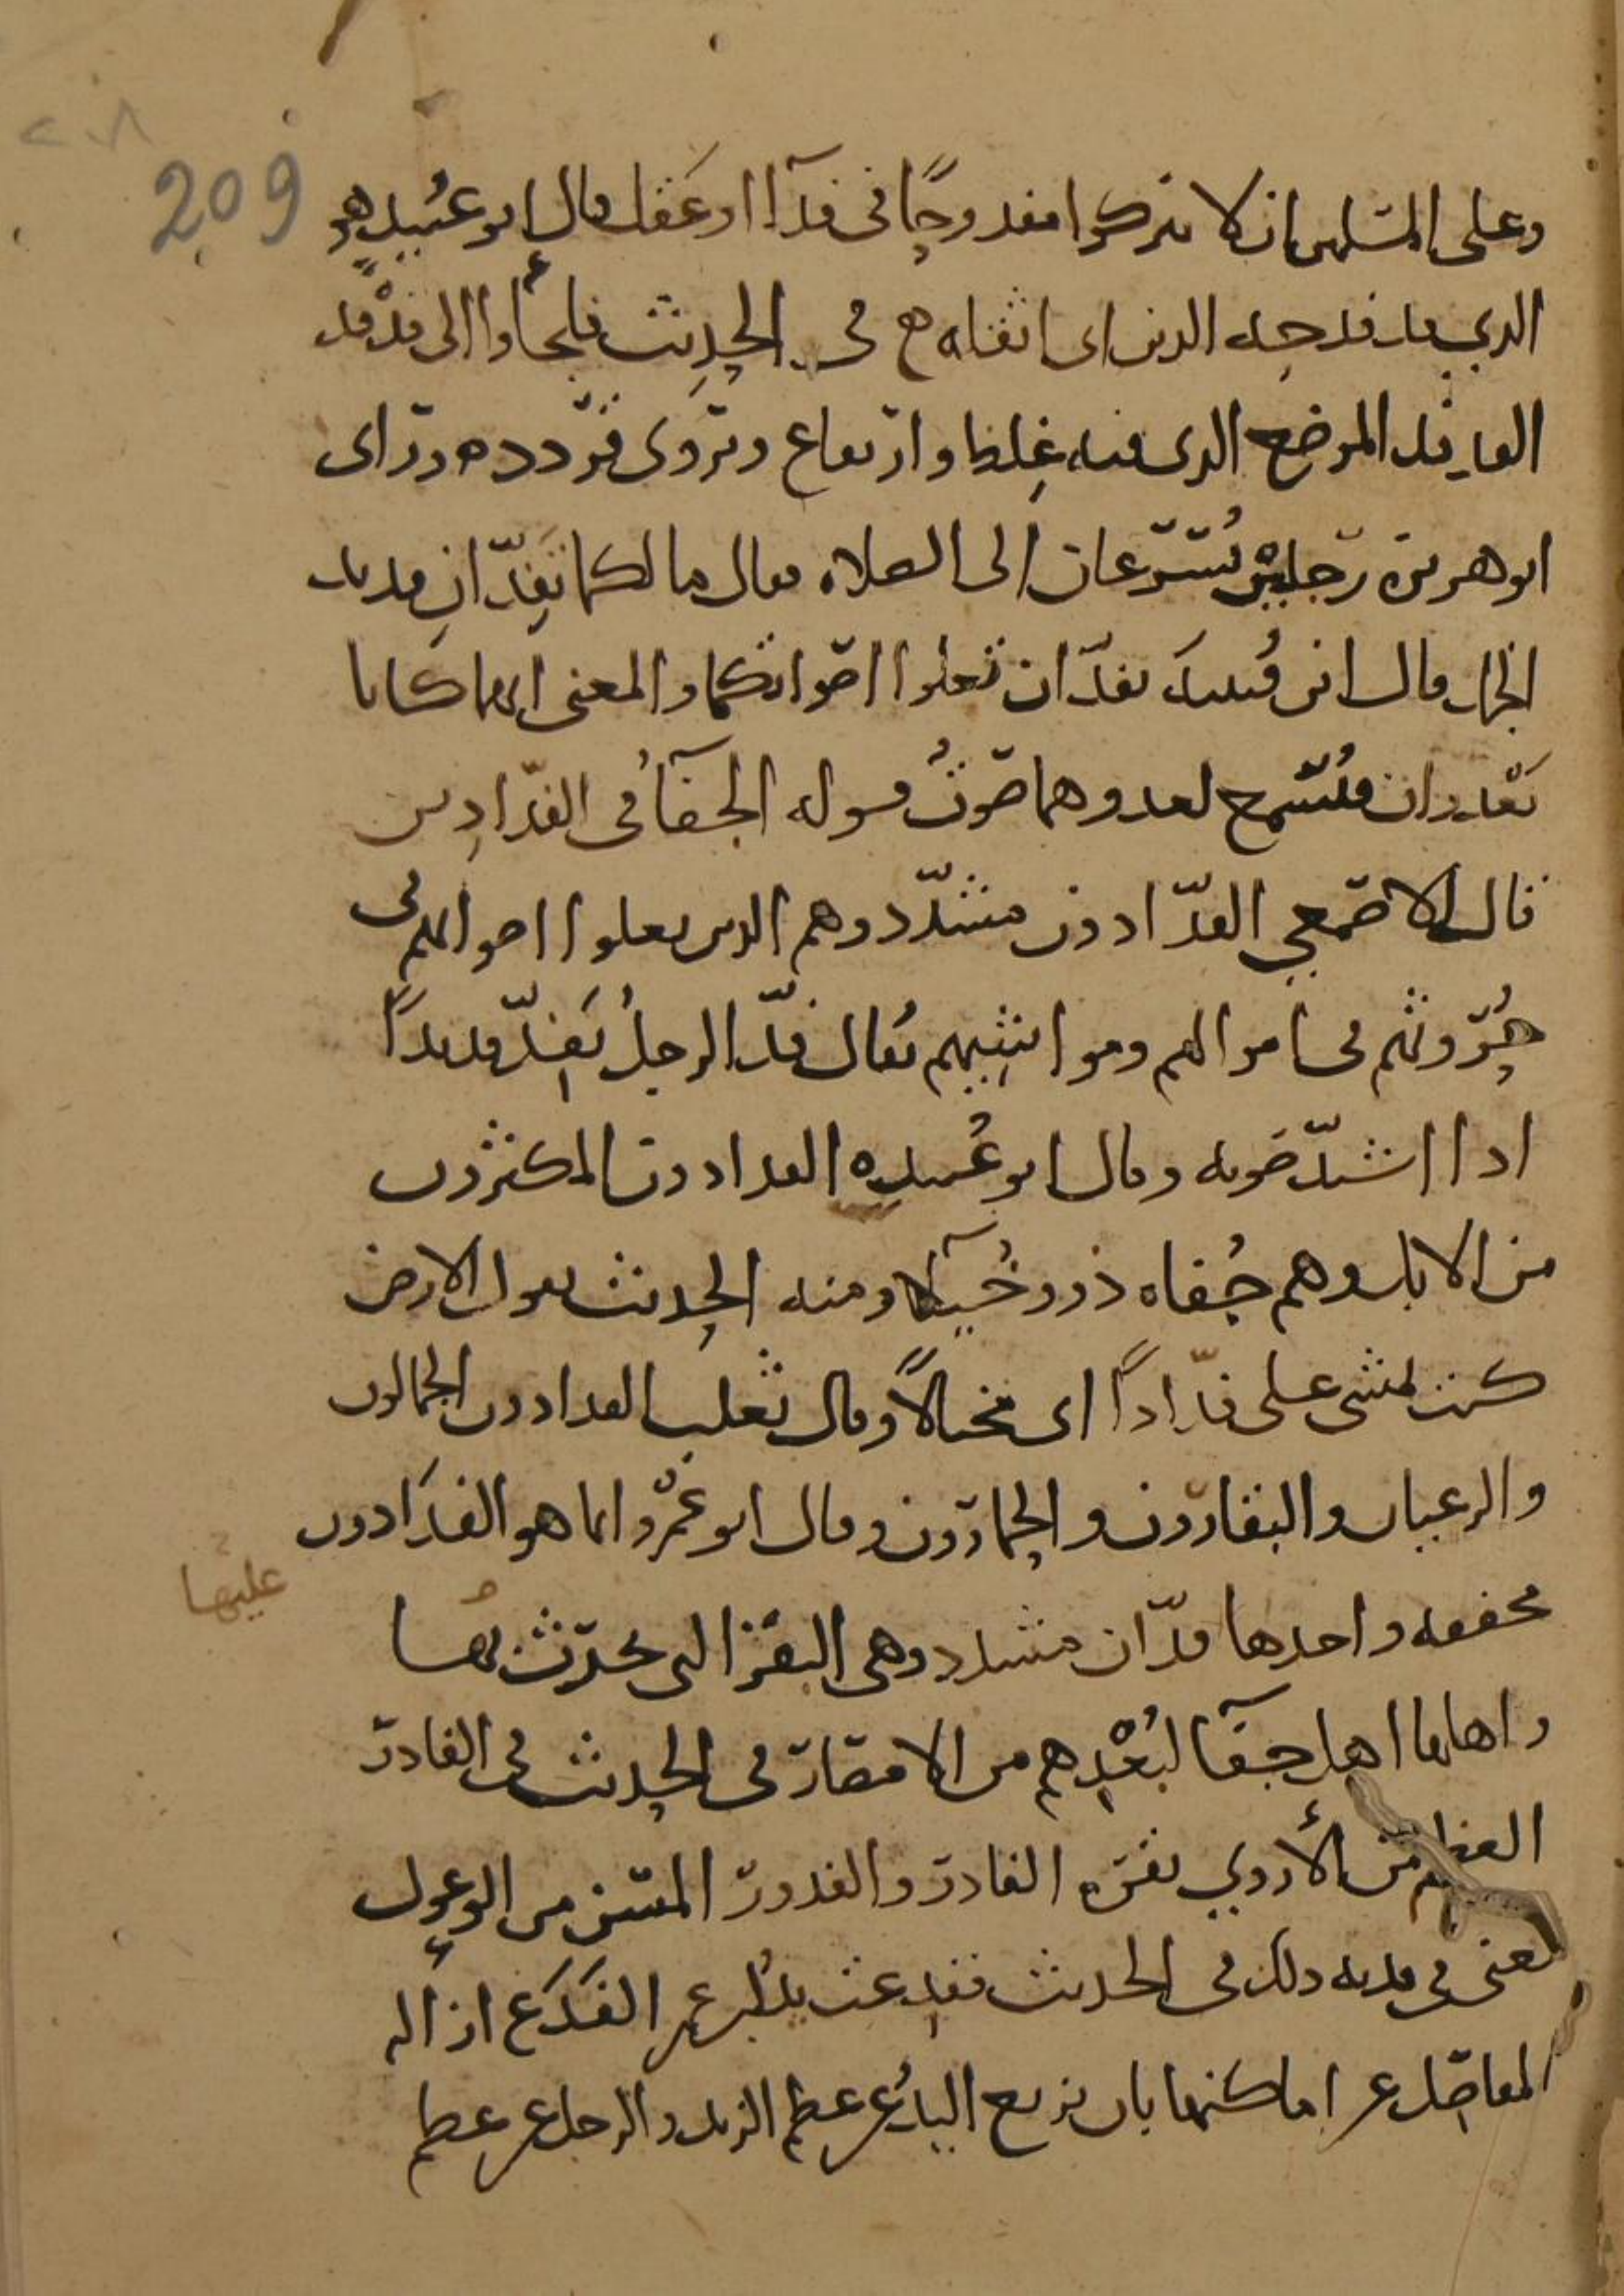 209
وعلى المسلمين ان لا يتركوا مفدوحًا في فدآ او عقل قال ابو عُبيد هو
الذي قد فدحه الدين اي اثقله ع في الحديث فلجأوا الى فدفد
الفدفد الموضع الذي فيه غِلظ وارتفاع ويروى قردده وراى
ابو هريرة رجلين يُسرعان الى الصلاه فقال ما لكما تَفِدّان فديد
الجمل قال ابن قُتيبه تفدّان تعلوا اصواتكما والمعنى انهما كانا
يَعْدوان فيُسمع لعدوهما صوتٌ قوله الجفآ في الفدّادين
قال الاصمعي الفدّادون مشدّد وهم الذين تعلوا اصواتهم في
حُروثهم في اموالهم ومواشيهم يُقال فدّ الرجلُ يَفِدّ فديدًا
اذا اشتدّ صوته وقال ابو عُبيده الفدادون المكثرون
من الابل وهم جُفاه ذوو خُيلآ ومنه الحديث يقول الارض
كنت تمشي علي فدّادًا اى مختالًا وقال ثعلب الفدادون الجمالون
والرعيان والبقارون والحمارون وقال ابو عَمْرو انما هو الفدَادون
مخففه واحدها فدّان مشدد وهي البقر التي يحرث بها
عليها
واهلها اهل جفآ لبُعْدِهم من الامصار في الحديث في الفادر
العظيم من الأروي بقره الفادر والفدور المسن من الوعول
يعني في فديه ذلك في الحديث ففدعت يدُ ابن عمر الفَدَع ازاله
المفاصل عن اماكنها بان تزيع اليدُ عن عظم الزند والرجل عن عظم